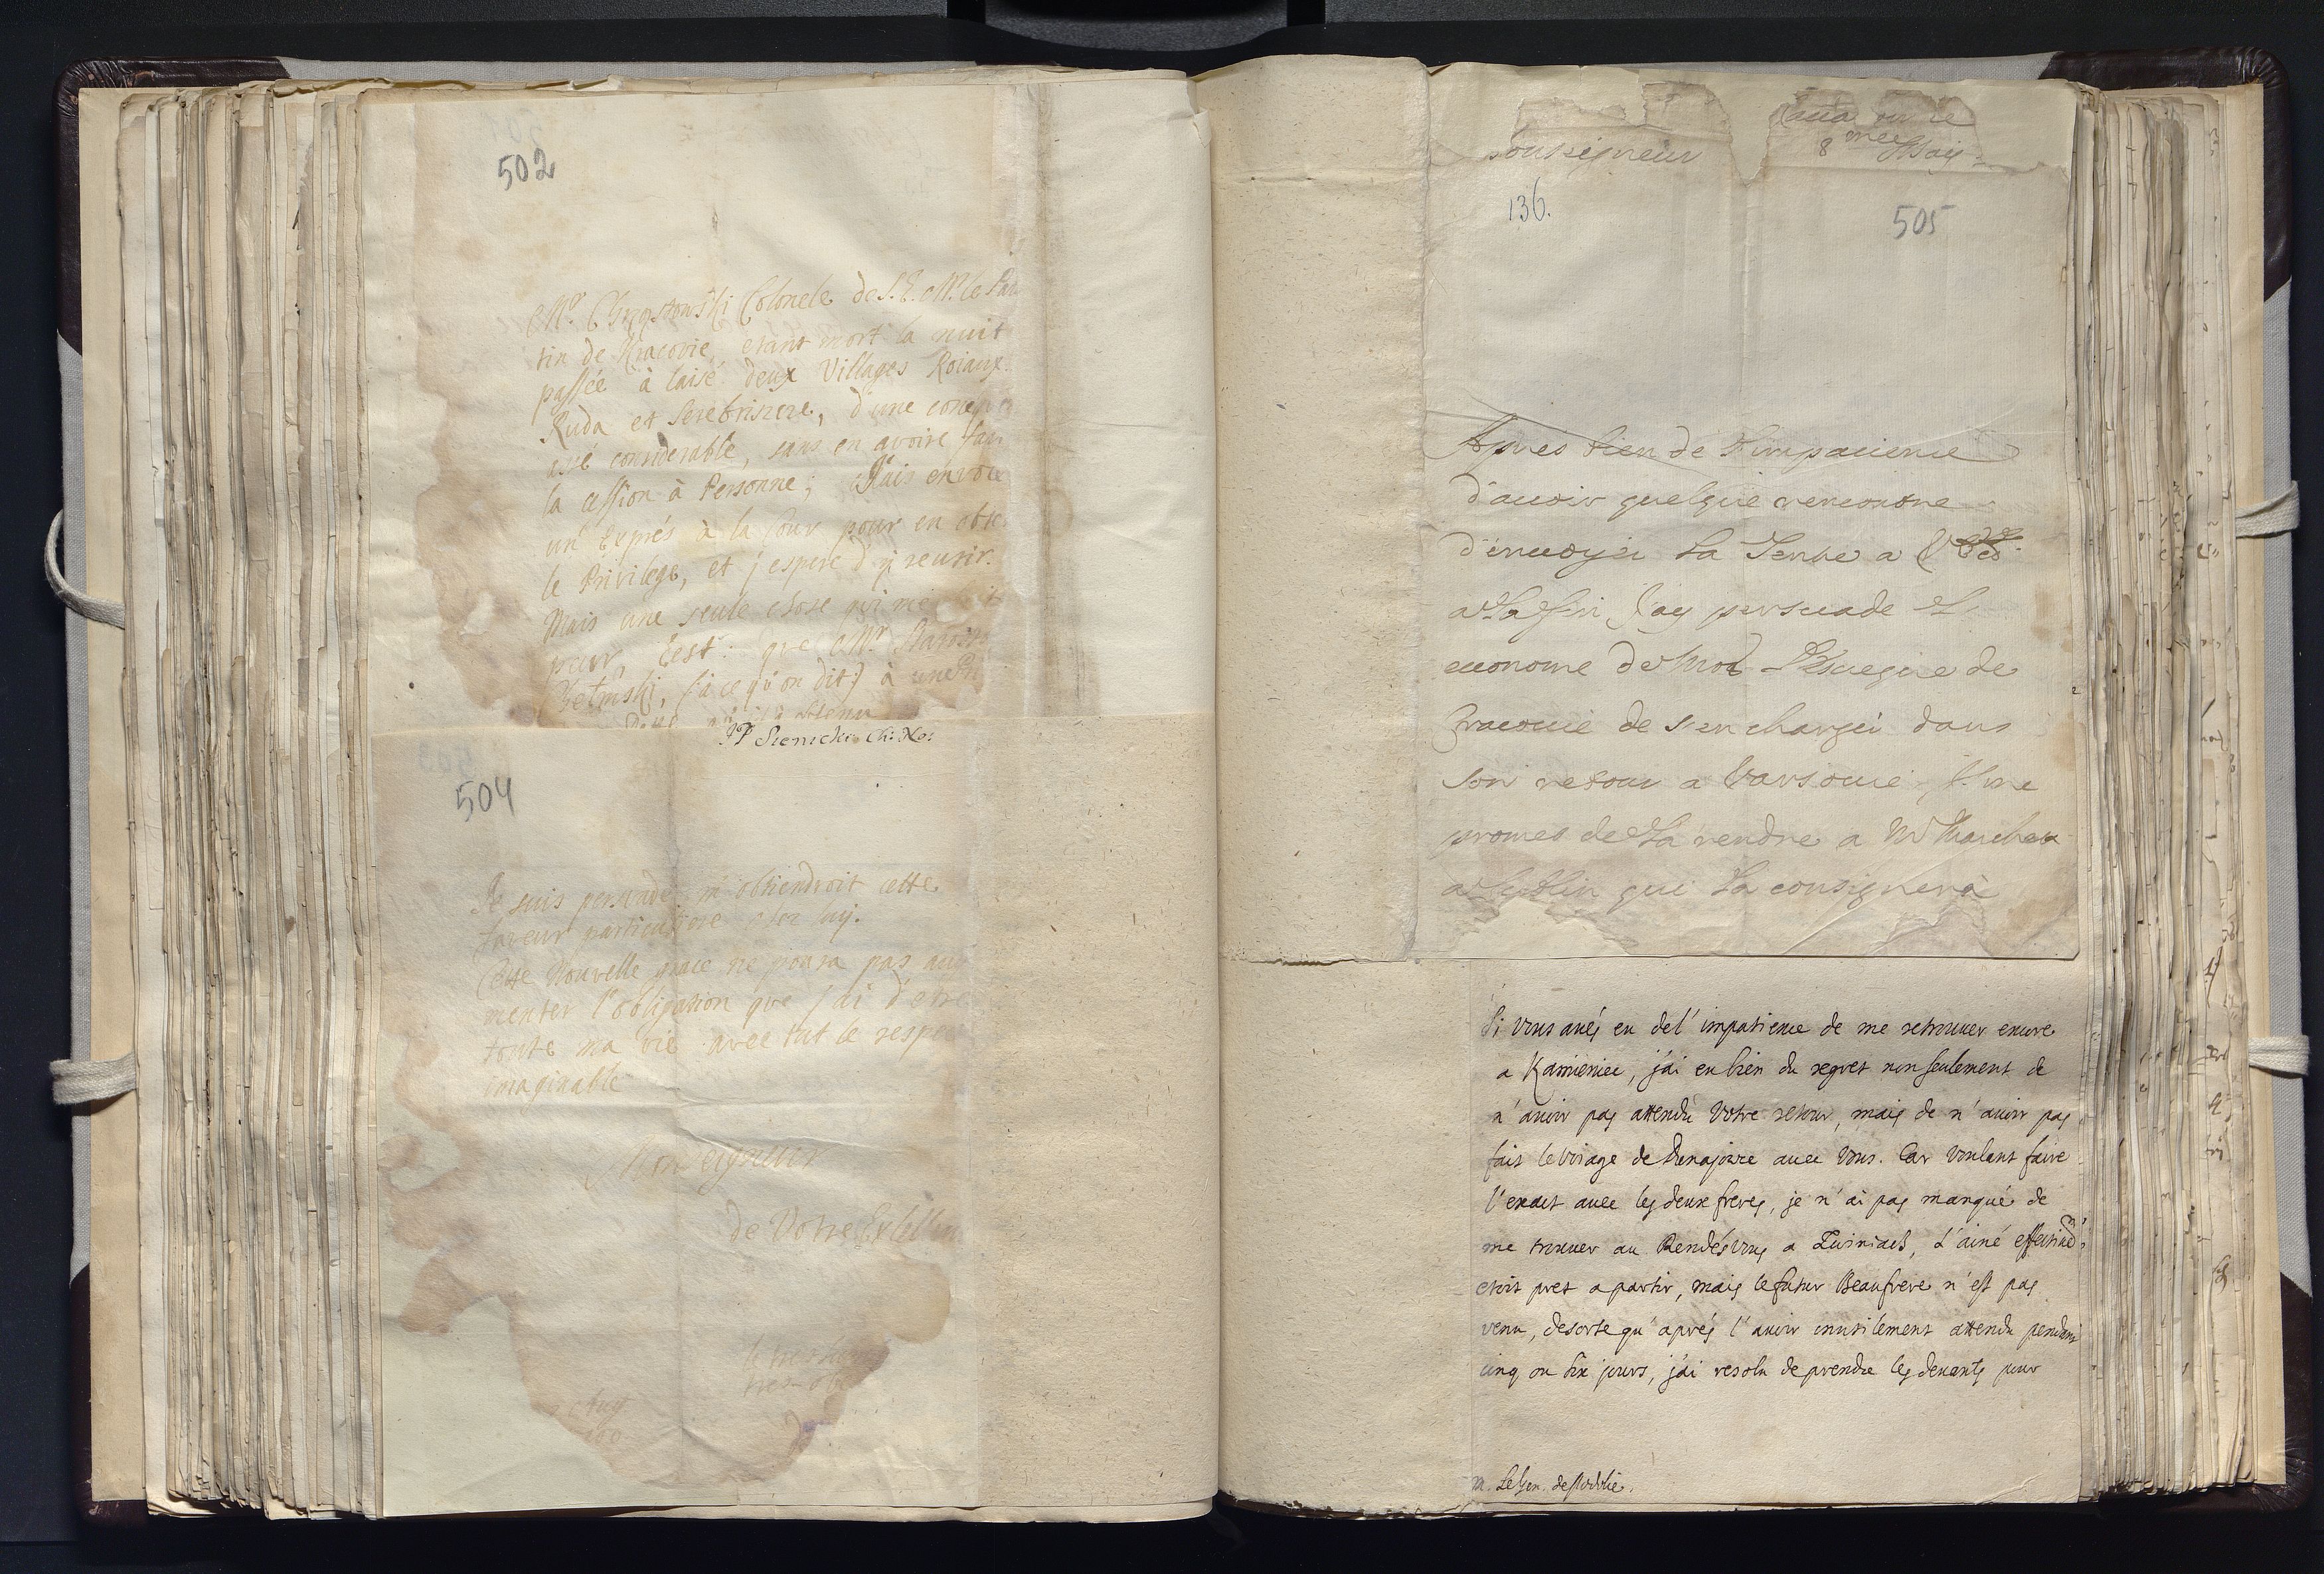 502
Mr. Chrzstowski Colonele de S.E. Mr. le Pala
tin de Kracovie, etant mort la nuit
passée à laisé deux Villages Roiaux
Ruda et Serebriszcze, d'une
assé considerable, sans en avoire
la cession à Personne; J'ais envoié
un Exprés à la Cour pour en
le Privilege, et j'espere d'y reusir.
Mais une seule chose qui me
peur, C'est: que Mr.
(à ce qu'on dit) à une
504
Je suis persuadé m'obtiendroit cette
faveur particuliere chez luy.
Cette Nouvelle grace ne poura pas
menter l'obligation que j'ai d'etre
toute ma vie avec tut le
imaginable
Monseigneur
de Votre
le tres
tres
Aug
8 me May
Monseigneur
136.
505
Apres bien de l'impacience
d'auoir quelque rencontre
d'enuoyer La Tente a
a la fin J'ay persuade L
econome de L'Euegue de
Cracouie de s'en chargei dans
Son retour a Varsouie, Il me
promes de La rendre a Mr
a Lublin qui La consignerà
Si vous aués eu de l'impatience de me retrouver encore
a Kamieniec, j'ai eu bien du regret non seulement de
n'auoir pas attendu Votre retour, mais de n'auoir pas
fait le voiage de auec vous. Car voulant faire
auec les deux freres, je n'ai pas manqué de
me trouuer au Rendésvous a L'ainé
etoit pret a partir, mais le futur Beaufrere n'est pas
venu, desorte qu'aprés l'auoir inutilement attendu pendant
cinq ou six jours, j'ai resolu de prendre les deuants pour
M. Le Gen. de Podolie.